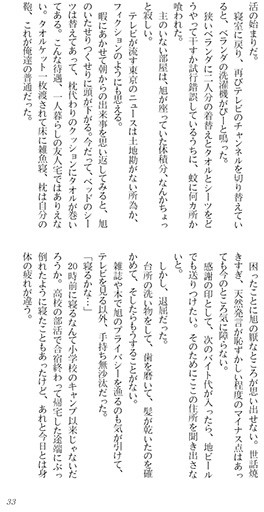 活の始まりだ。
　寝室に戻り、再びテレビのチャンネルを切り替えてい
ると、ベランダの洗濯機がぴーと鳴った。
　狭いベランダに二人分の着替えとタオルとシーツをど
うやって干すか試行錯誤しているうちに、蚊に何カ所か
喰われた。
　主のいない部屋は、旭が座っていた体積分、なんかちょっ
と寂しい。
　テレビが流す東京のニュースは土地勘がない所為か、
フィクションのようにも思える。
　暇にあかせて朝からの出来事を思い返してみると、旭
のいたせりつくせりに頭が下がる。今だって、ベッドのシー
ツは替えてあって、枕代わりのクッションにタオルが巻い
てある。こんな待遇、一人暮らしの友人宅ではありえな
い。タオルケット一枚渡されて床に雑魚寝、枕は自分の
鞄、これが俺達の普通だった。
　困ったことに旭の厭なところが思い出せない。世話焼
きすぎ、天然発言が恥ずかしい程度のマイナス点はあっ
ても今のところ気に障らない。
　感謝の印として、次のバイト代が入ったら、地ビール
でも送りつけたい。そのためにここの住所を聞き出さな
いと。
　しかし、退屈だった。
　台所の洗い物をして、歯を磨いて、髪が乾いたのを確
かめて、そしたらもうすることがない。
　雑誌や本で旭のプライバシーを漁るのも気が引けて、
テレビを見る以外、手持ち無沙汰だった。
「寝るかな…」
　20時前に寝るなんて小学校のキャンプ以来じゃないだ
ろうか。高校の部活で合宿終わって帰宅した途端にぶっ
倒れたように寝たこともあったけど、あれと今日とは身
体の疲れが違う。
33